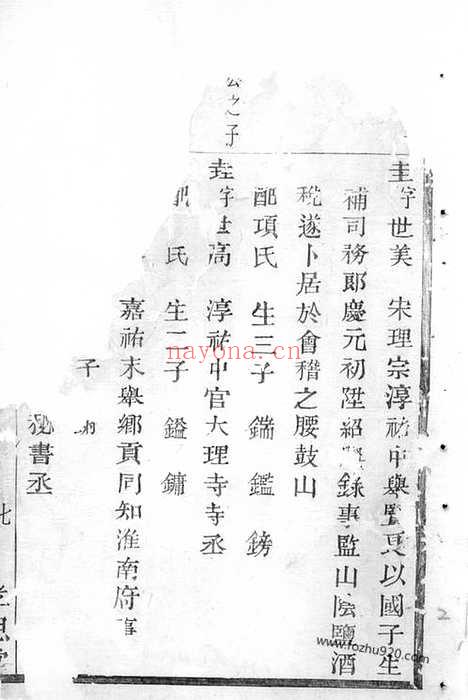 之子
圭字世美 宋理宗淳祐中舉以國子生
補司務郎慶元初陞紹錄事監山陰鹽酒
稅遂卜居於會稽之腰鼓山
配項氏 生三子 鍴 鑑 鎊
垚字世高 淳祐中官大理寺寺丞
氏 生二子 鎰 鏞
嘉祐末舉鄉貢同知淮南府事
子
秘書丞
七
nayona.cn
www.fozhu920.com
2